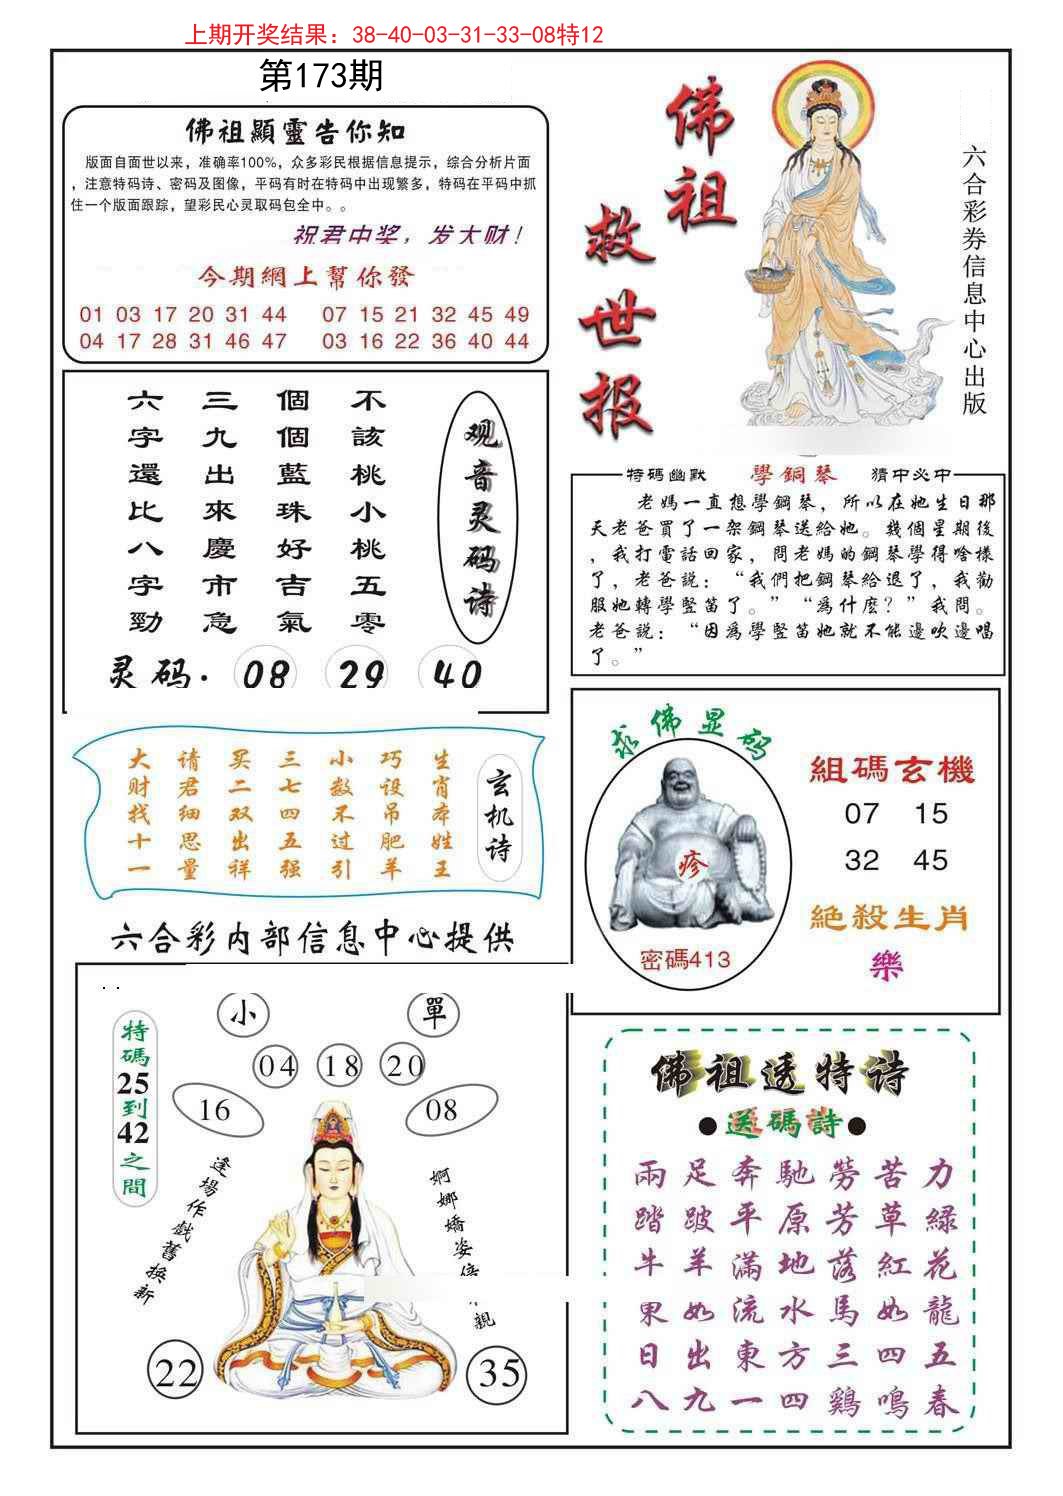 上期开奖结果：38-40-03-31-33-08特12
第173期
佛祖顯靈告你知
版面自面世以来，准确率100%，众多彩民根据信息提示，综合分析片面
，注意特码诗、密码及图像，平码有时在特码中出现繁多，特码在平码中抓
住一个版面跟踪，望彩民心灵取码包全中。。
祝君中奖，发大财！
今期網上幫你發
01 03 17 20 31 44 07 15 21 32 45 49
04 17 28 31 46 47 03 16 22 36 40 44
佛祖
救世报
六合彩券信息中心出版
观音灵码诗
不該桃小桃五零
個個藍珠好吉氣
三九出來慶市急
六字還比八字勁
灵码. 08 29 40
特码幽默 學鋼琴 猜中必中
老媽一直想學鋼琴，所以在她生日那
天老爸買了一架鋼琴送給她。幾個星期後
，我打電話回家，問老媽的鋼琴學得啥樣
了，老爸説：“我們把鋼琴給退了，我勸
服她轉學豎笛了。”“爲什麽？”我問。
老爸説：“因爲學豎笛她就不能邊吹邊唱
了。”
玄机诗
生肖本姓王
巧设吊肥羊
小数不过引
三七四五强
买二双出祥
请君细思量
大财找十一
求佛显码
疹
密碼413
組碼玄機
07 15
32 45
絕殺生肖
樂
六合彩内部信息中心提供
小 單
特碼25到42之間
04 18 20
16 08
逢場作戲舊換新
婀娜嬌姿
親
22 35
佛祖透特诗
●送碼詩●
兩足奔馳勞苦力
踏跛平原芳草緑
牛羊滿地落紅花
果如流水馬如龍
日出東方三四五
八九一四鷄鳴春